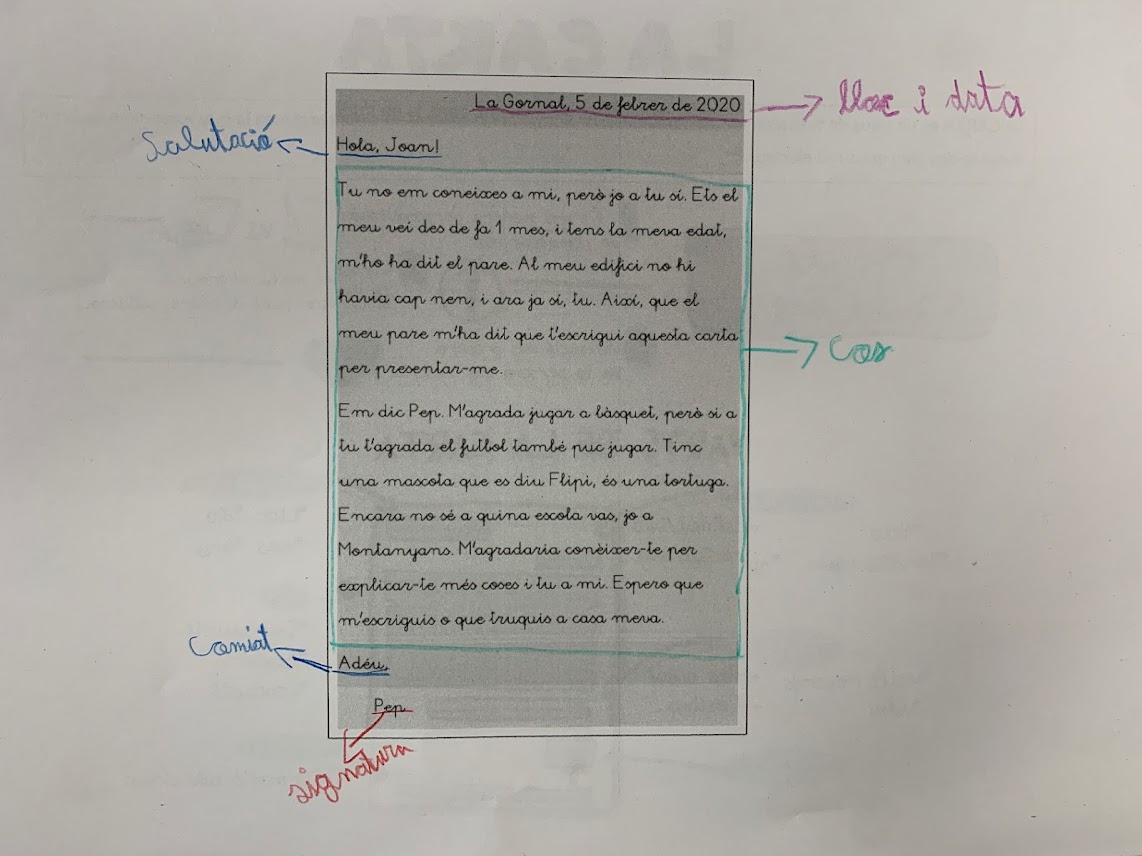 La Gornal, 5 de febrer de 2020
lloc i data
Salutació
Hola, Joan!
Tu no em coneixes a mi, però jo a tu sí. Ets el
meu veí des de fa 1 mes, i tens la meva edat,
m'ho ha dit el pare. Al meu edifici no hi
havia cap nen, i ara ja sí, tu. Així, que el
meu pare m'ha dit que t'escrigui aquesta carta
per presentar-me.
Cos
Em dic Pep. M'agrada jugar a bàsquet, però si a
tu t'agrada el futbol també puc jugar. Tinc
una mascota que es diu Flipi, és una tortuga.
Encara no sé a quina escola vas, jo a
Montanyans. M'agradaria conèixer-te per
explicar-te més coses i tu a mi. Espero que
m'escriguis o que truquis a casa meva.
Comiat
Adéu,
Pep
signatura